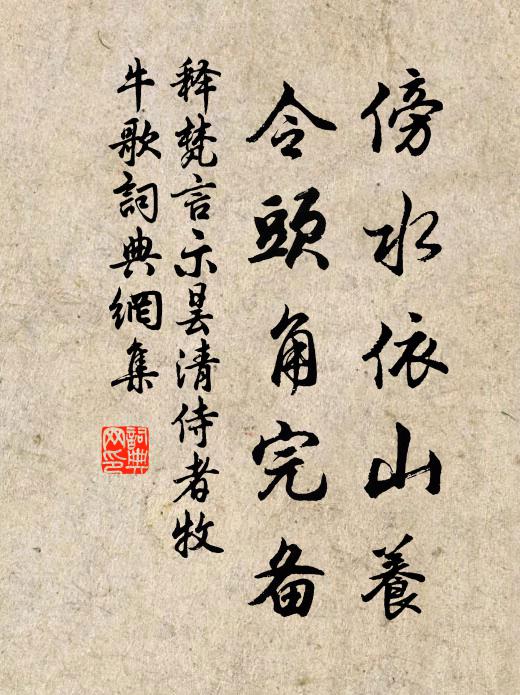 傍水依山養
令頭角完备
释梵言示昙清侍者牧
牛歌詞典網集
詞典
网印